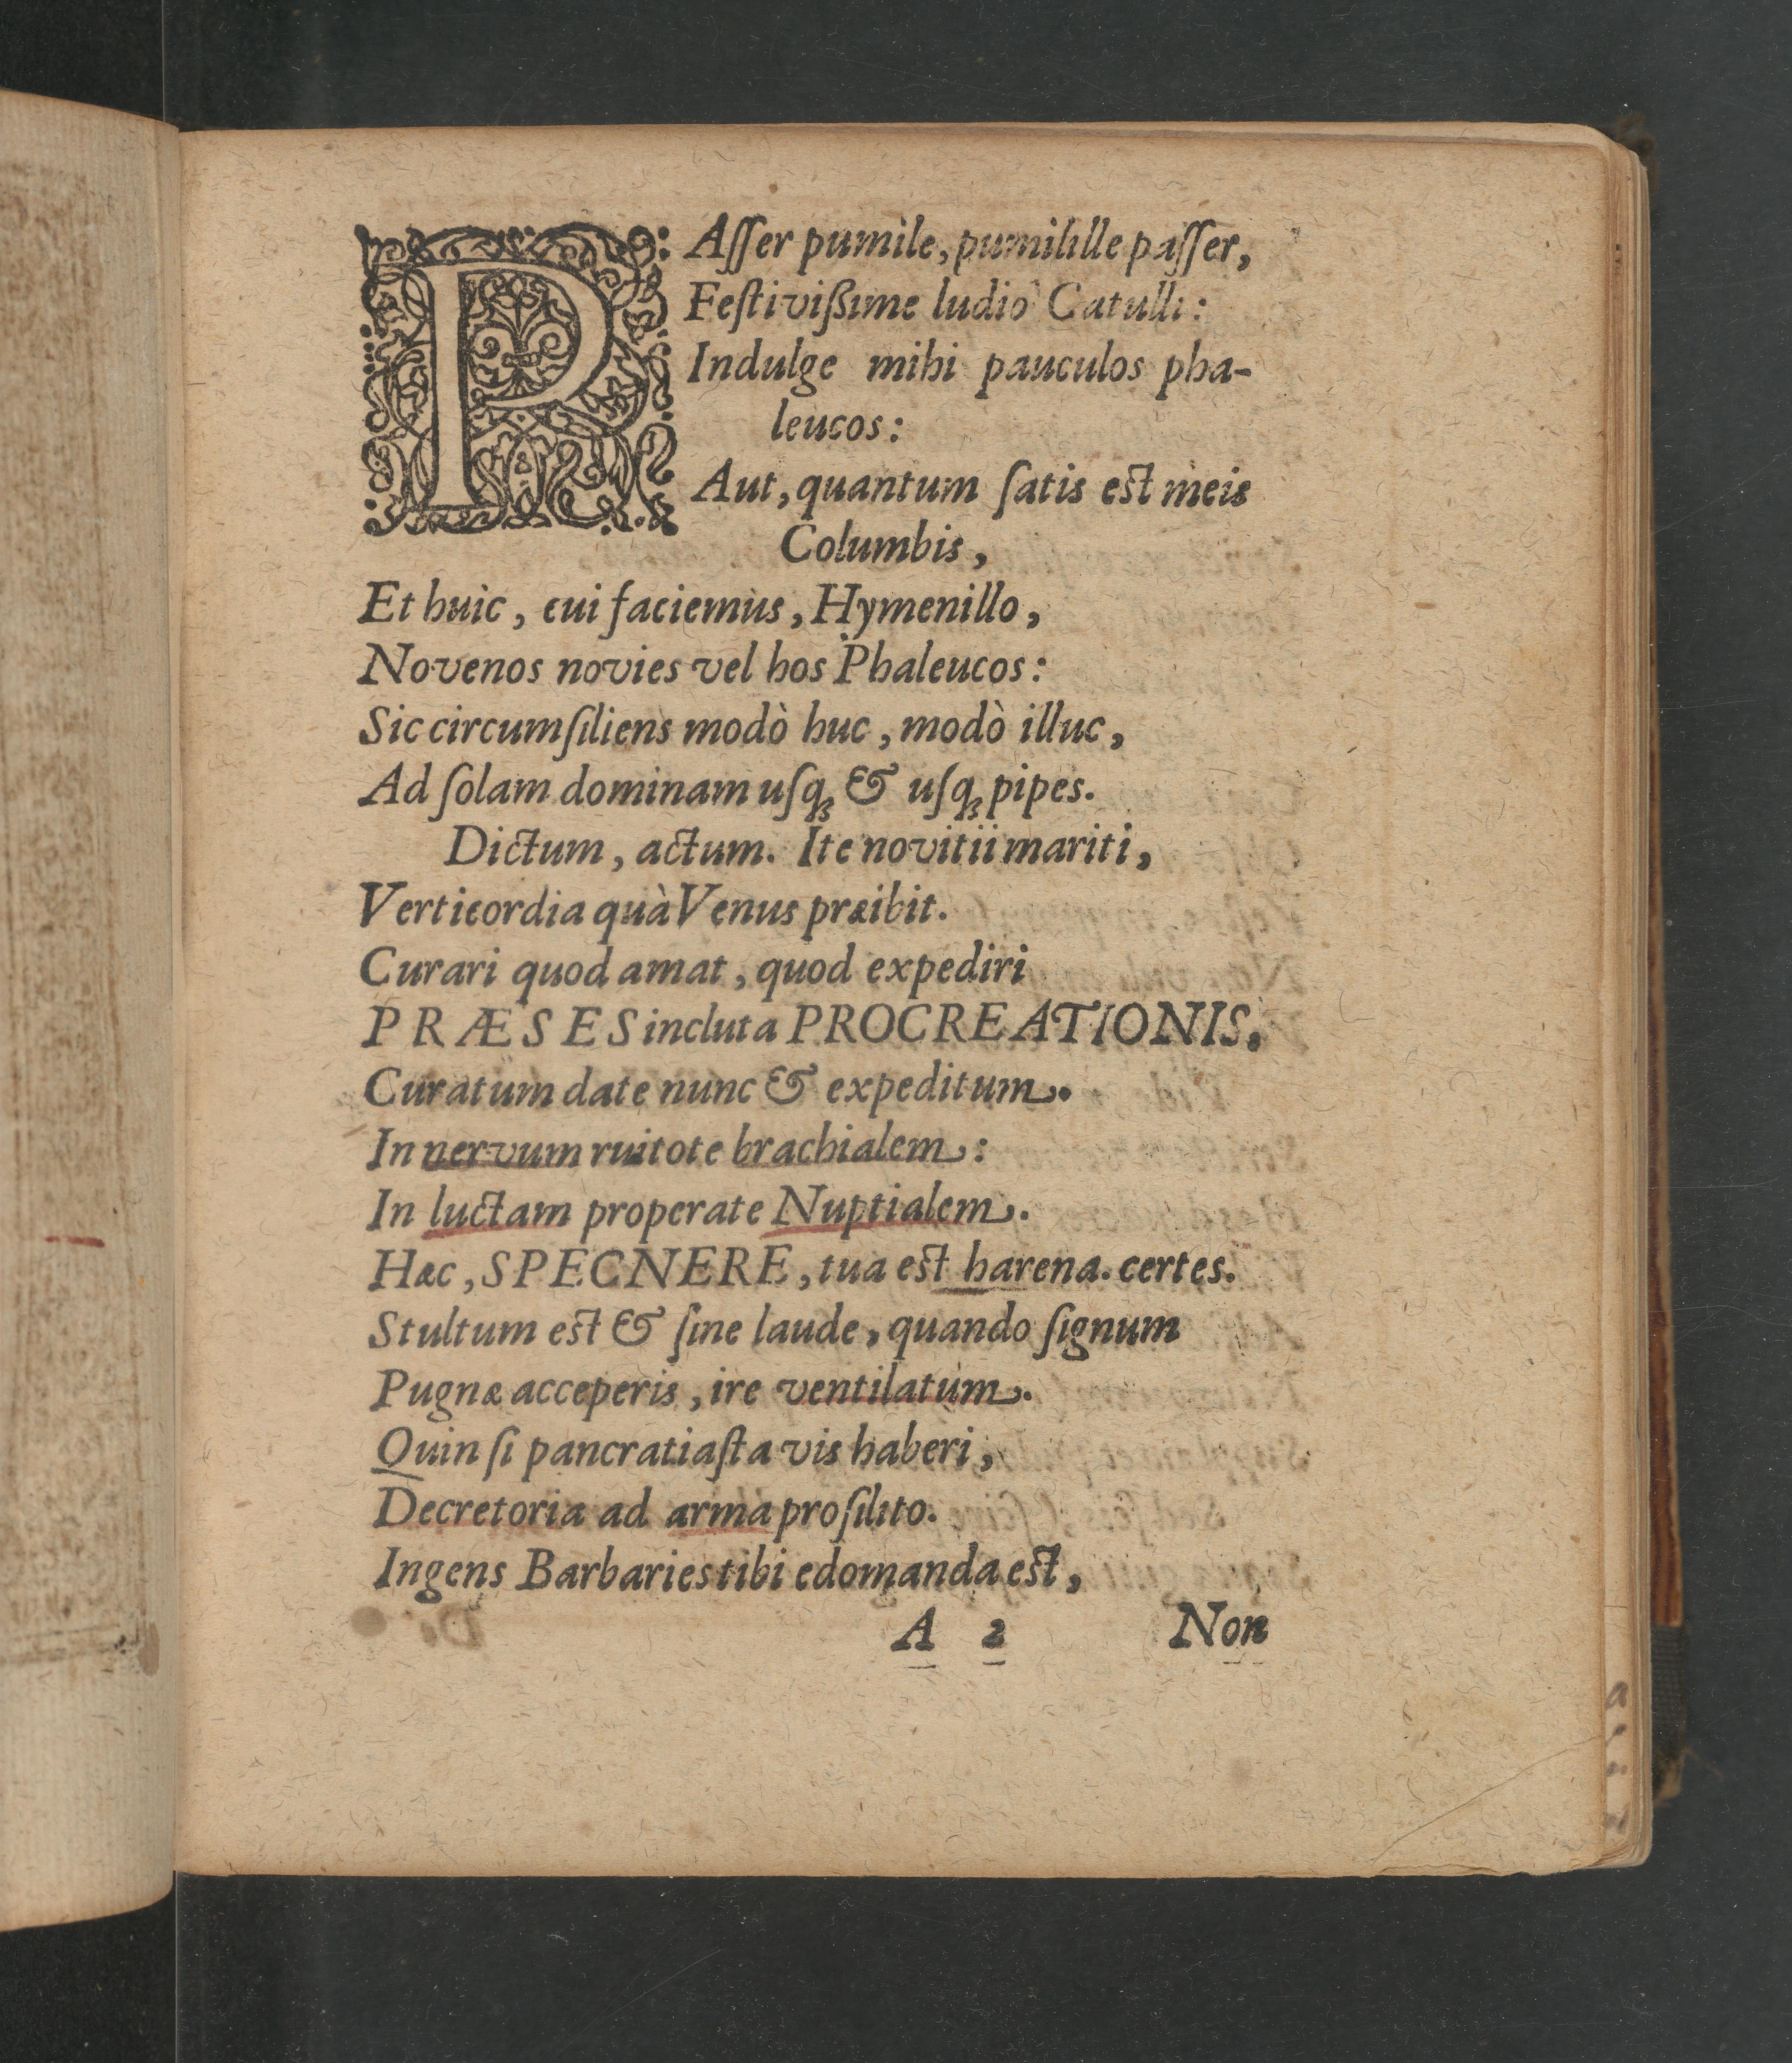 PAſſer pumile, pumilille paſſer,
Feſtivißime ludio Catulli:
Indulge mihi pauculos pha-
leucos:
Aut, quantum ſatis est meis
Columbis,
Et huic, cui faciemus, Hymenillo,
Novenos novies vel hos Phaleucos:
Sic circumſiliens modò huc, modò illuc,
Ad ſolam dominam uſq₃ & uſq₃ pipes.
Dictum, actum. Ite novitii mariti,
Verticordia quà Venus præibit.
Curari quod amat, quod expediri
PRÆSES incluta PROCREATIONIS.
Curatum date nunc & expeditum.
In nervum ruitote brachialem:
In luctam properate Nuptialem.
Hæc, SPECNERE, tua est harena. certes.
Stultum est & ſine laude, quando ſignum
Pugnæ acceperis, ire ventilatum.
Quin ſi pancratiaſta vis haberi,
Decretoria ad arma proſilito.
Ingens Barbaries tibi edomanda est,
A 2 Non